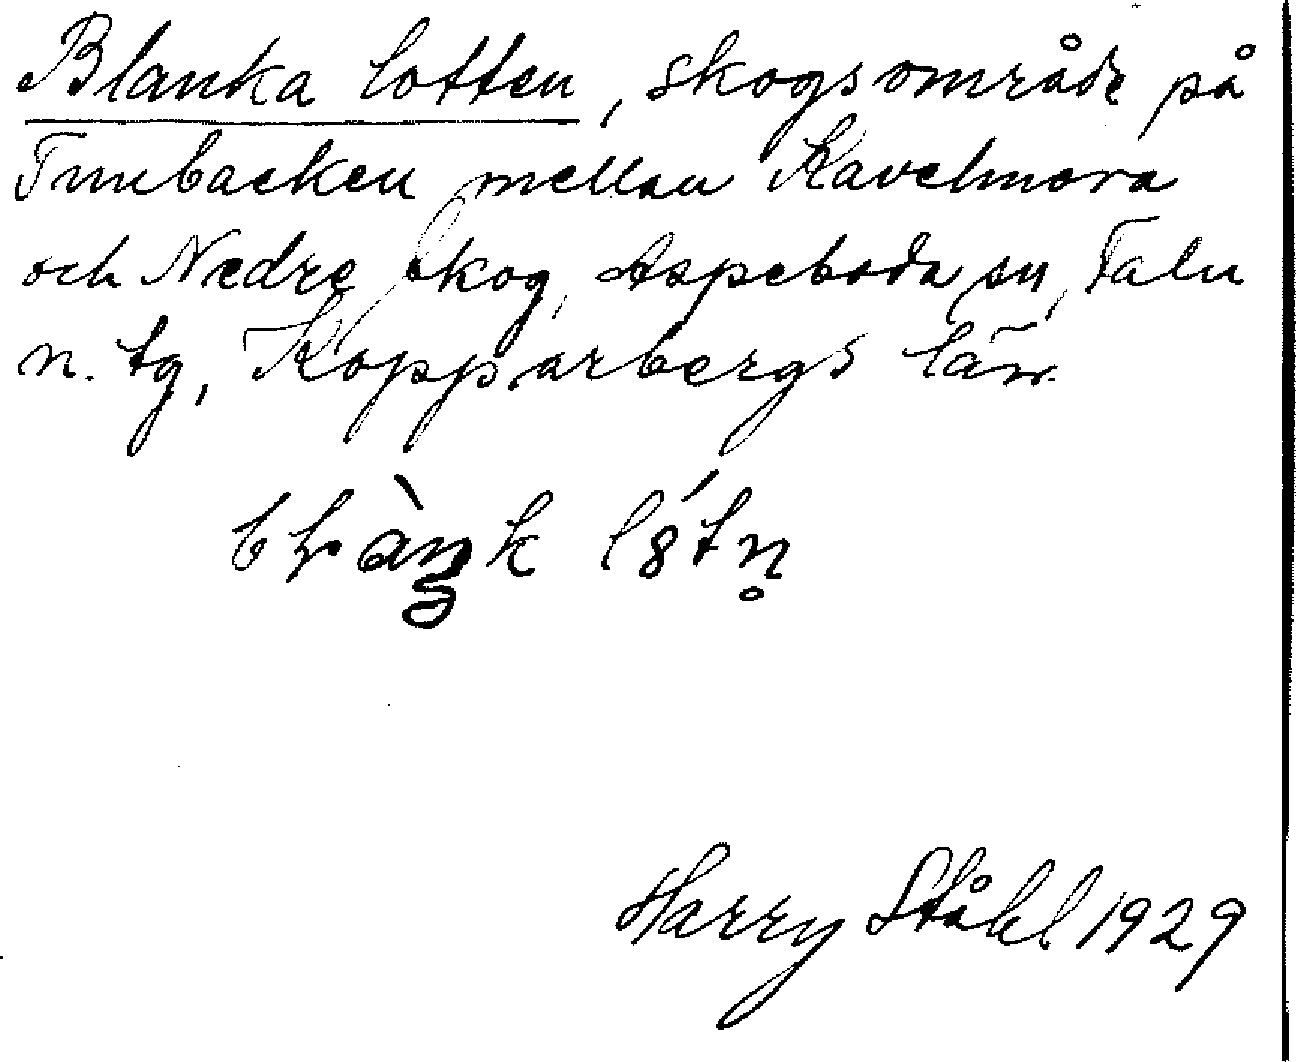 Blanka lotten, skogsområde på
Tunbacken mellan Kavelmora
och Nedre Skog, Aspeboda sn, Falu
n. tg, Kopparbergs län.
Harry Ståhl 1929